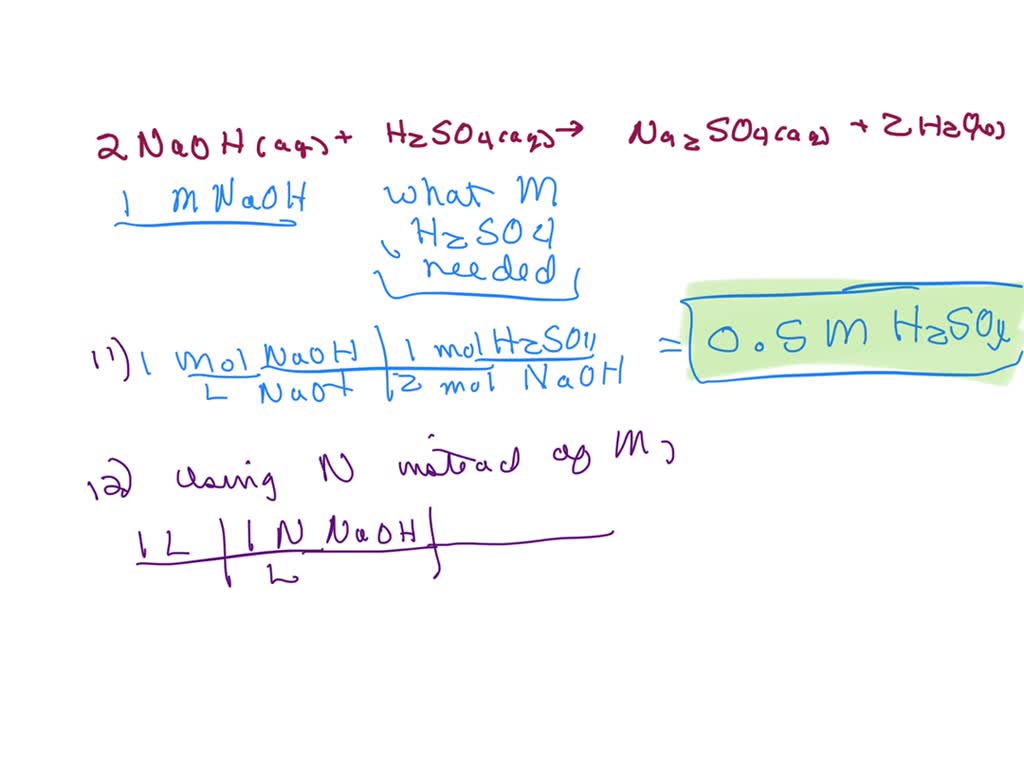 2 NaOH(aq) + H2SO4(aq) → Na2SO4(aq) + 2H2O(l)
1 M NaOH
what M
H2SO4
needed
11) 1 mol NaOH | 1 mol H2SO4 = 0.5 M H2SO4
L NaOH | 2 mol NaOH
12) Using N instead of M,
1 L | 1 N NaOH |
L